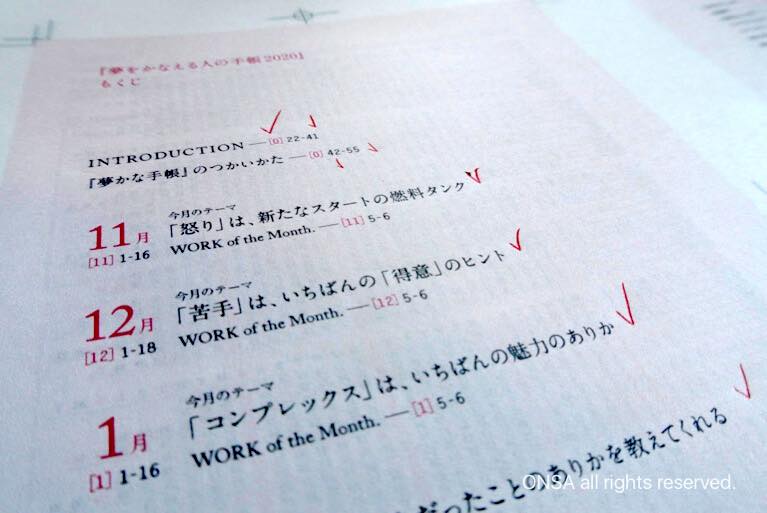 『夢をかなえる人の手帳2020』
もくじ
INTRODUCTION — [0] 22-41
『夢かな手帳』のつかいかた — [0] 42-55
11月
[11] 1-16
今月のテーマ
「怒り」は、新たなスタートの燃料タンク
WORK of the Month. — [11] 5-6
12月
[12] 1-18
今月のテーマ
「苦手」は、いちばんの「得意」のヒント
WORK of the Month. — [12] 5-6
1月
[1] 1-16
今月のテーマ
「コンプレックス」は、いちばんの魅力のありか
WORK of the Month. — [1] 5-6
だったことのありかを教えてくれる
ONSA all rights reserved.